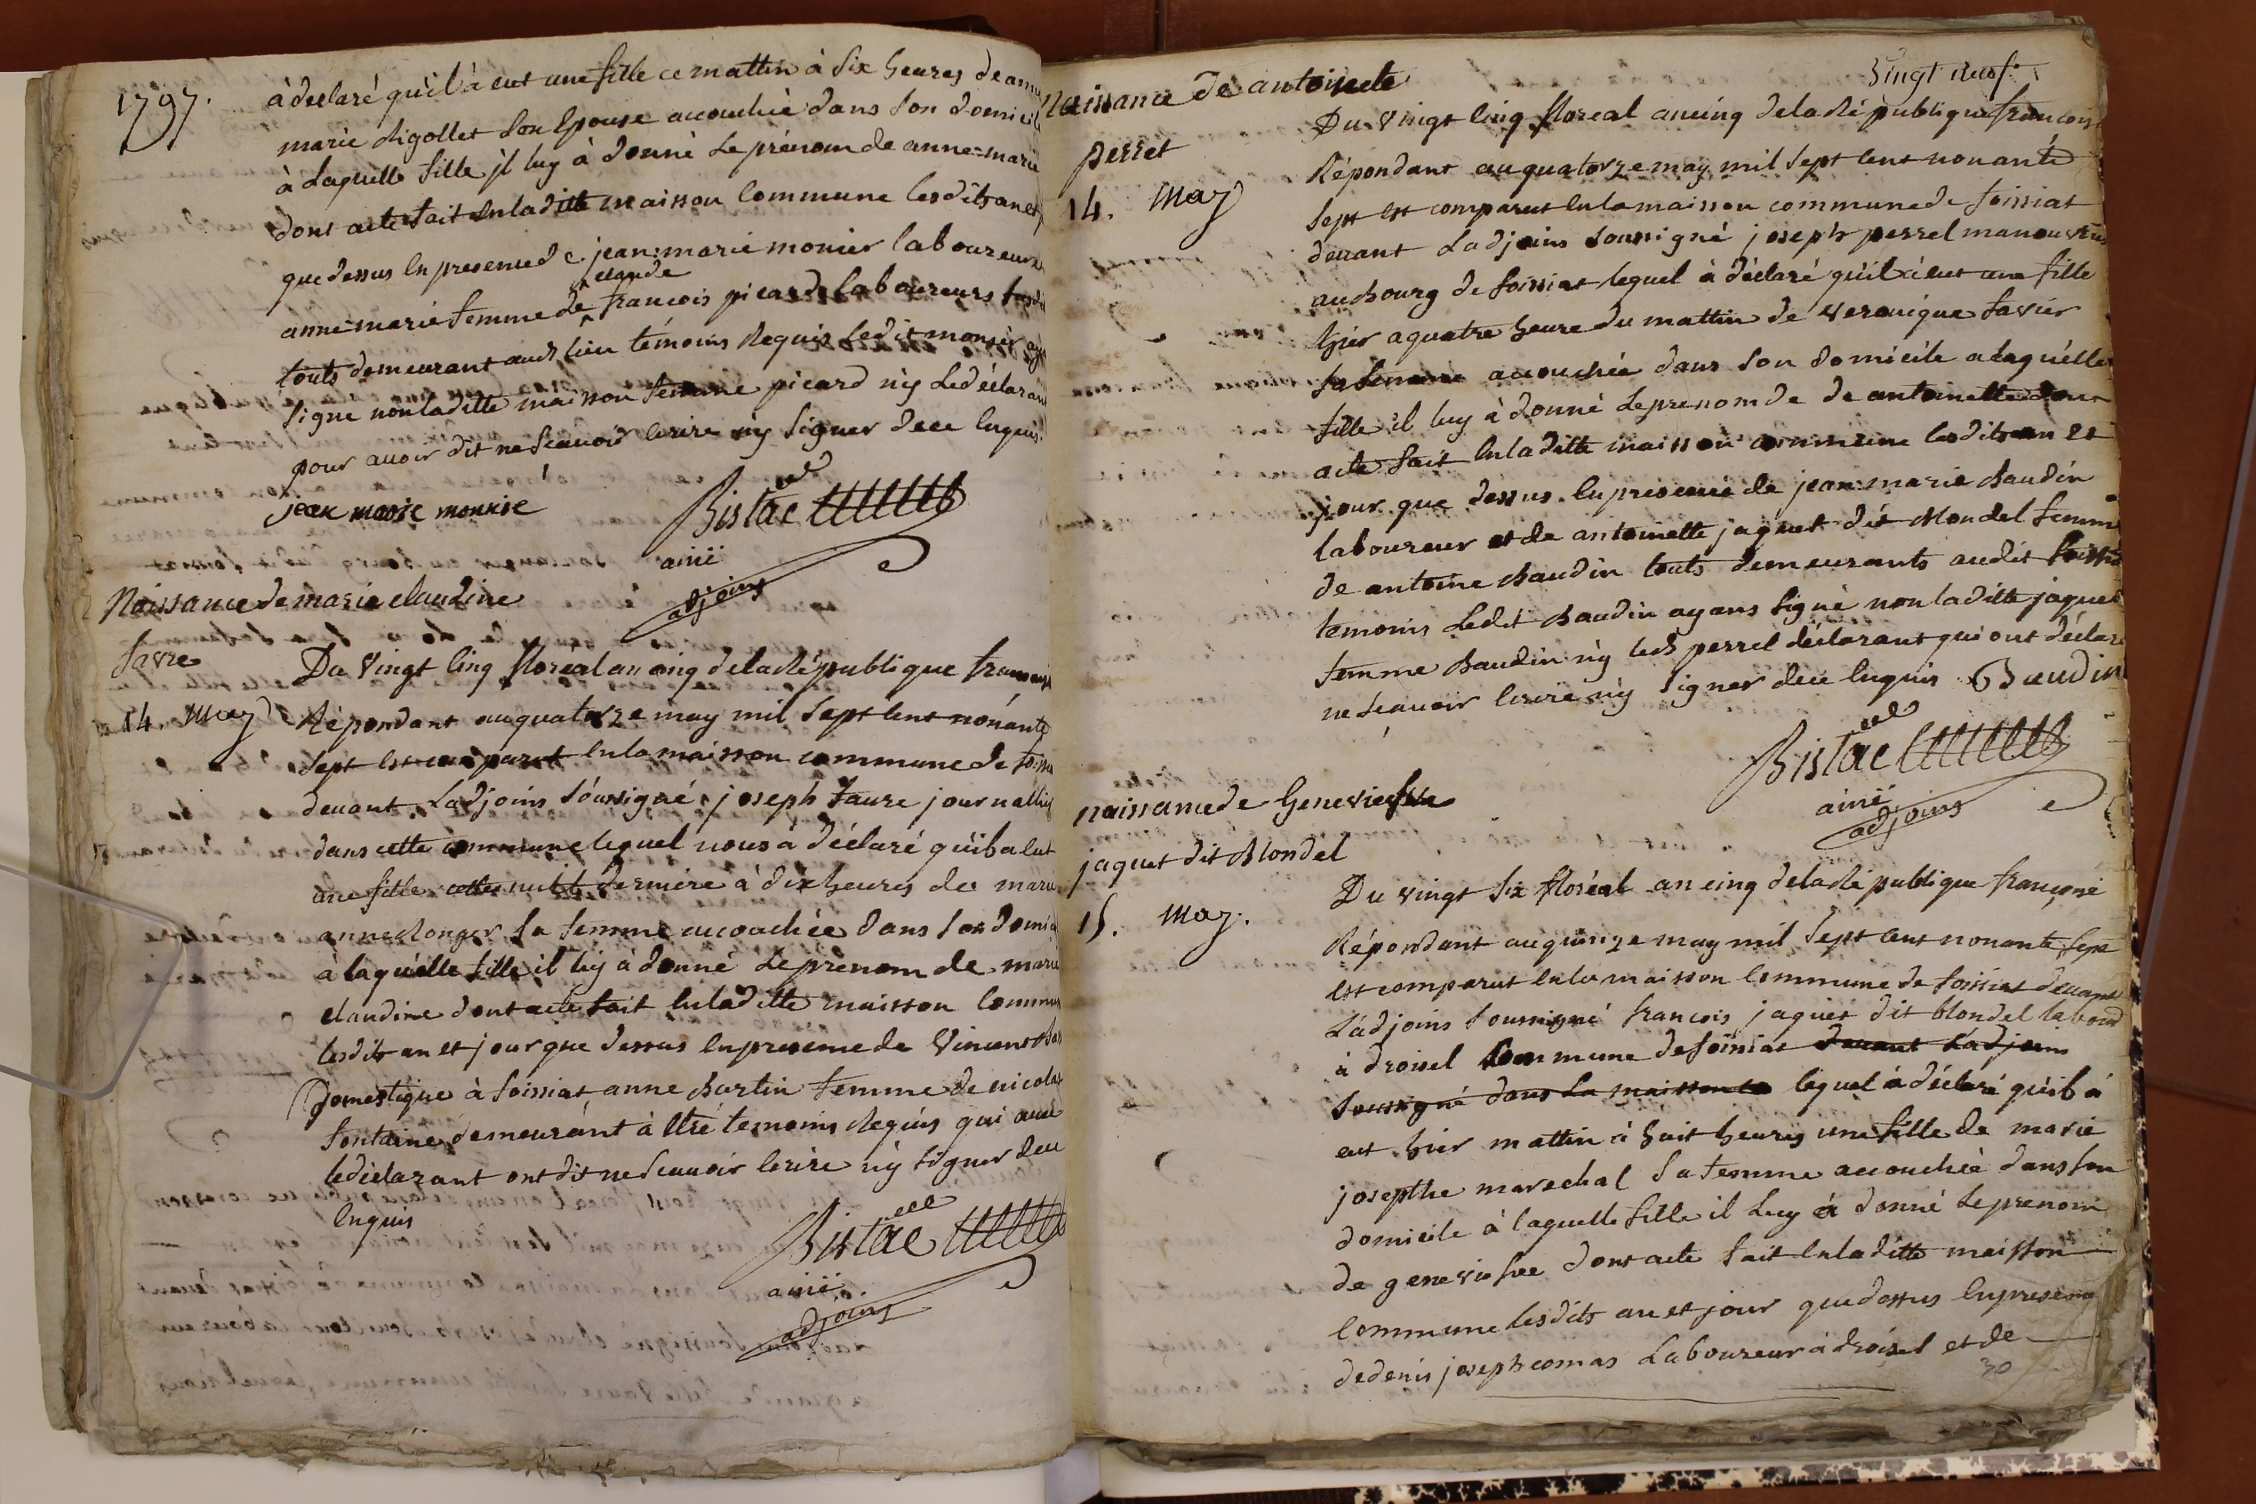 1797.
à declaré qu'il à eut une fille ce mattin à six heures de anne
marie Rigollet son Epouse accouchée dans son domicile
à Laquelle fille jl luy à donné Le prénom de anne-marie
dont acte fait en ladite maisson Commune lesdits an et
que dessus En presence de jean-marie monier laboureur
claude
anne-marie femme de françois picard laboureurs
touts demeurant aud. lieu témoins Requis ledit monier
signe non laditte maisson femme picard n'y Le déclarant
pour avoir dit ne scavoir Ecrire n'y signer de ce Enquis.
jean marie monnié
Bistac
ainé
adjoint
Naissance de marie claudine
favre
14. May
Du Vingt Cinq floréal an cinq de la République française
Répondant au quatorze may mil sept Cent nonante
sept Est comparut En la maisson commune de foissiat
devant Ladjoint soussigné joseph faure journallier
dans cette commune lequel nous à déclaré qu'il a Eut
une fille cette nuit derniere à dix heures de marie
anne Monger sa femme accouchée dans son domicile
à laquélle fille il luy à donné Le prenom de marie
claudine dont acte fait En laditte maisson Commune
lesdits an et jour que dessus En presence de Vincent
Domestique à foissiat anne Burtin femme de nicolas
fontaine demeurant à Etré temoins Réquis qui avec
le déclarant ont dit ne Scavoir Ecrire n'y signer de ce
Enquis
Bistac
ainé
adjoint
Vingt neuf.
Naissance de antoinete
perret
14. May
Du Vingt Cinq floreal an cinq de la République françoise
Répondant au quatorze may mil sept Cent nonante
sept Est comparut En la maisson commune de foissiat
devant Ladjoint soussigné joseph perrel manouvrier
au Bourg de foissiat lequel à déclaré qu'il à eut une fille
hier a quatre heure du mattin de veronique favier
sa femme accouchée dans son domicile a laquelle
fille il luy à donné Le prenom de de antoinette dont
acte fait En laditte maisson commune lesdits an Et
jour que dessus En presence de jean-marie Baudin
laboureur et de antoinette jaquet dit Blondel femme
de antoine Baudin touts demeurants audit foissiat
temoins Ledit Baudin ayans signé non laditte jaquet
femme Baudin n'y led. perrel déclarant qui ont déclaré
ne Scavoir Ecrire n'y signer de ce Enquis Baudin
Bistac
ainé
adjoint
naissance de Genevieve
jaquet dit Blondel
15. May.
Du vingt Six floréal an cinq de la République françoise
Répondant au quinze may mil Sept Cent nonante Sept
Est comparut En la maisson Commune de foissiat devant
Ladjoint Soussigné françois jaquet dit blondel laboureur
à droisel Commune de foissiat devant Ladjoint
Soussigné dans la maisson lequel à déclaré qu'il à
eut hier mattin à huit heures une fille de marie
josepthe marechal Sa femme accouchée dans Son
domicile à laquelle fille il Luy à donné Le prenom
de genevieve dont acte fait En laditte maisson
Commune lesdits an et jour que dessus En presence
de denis joseph comas Laboureur à droisel et de
30